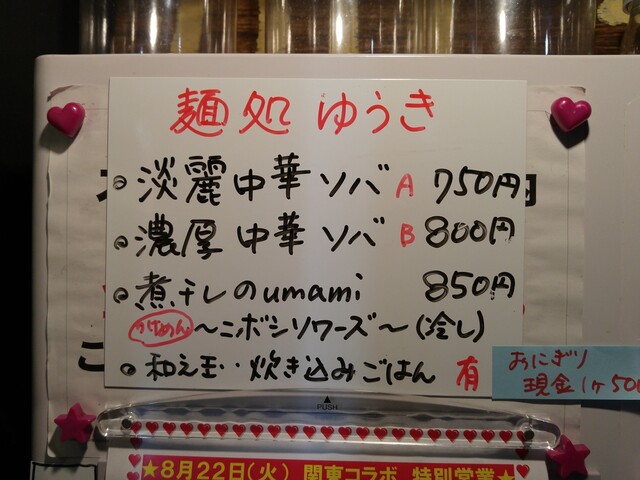 麺処 ゆうき
淡麗中華ソバ A 750円
濃厚中華ソバ B 800円
煮干しのumami 850円
つけめん ～ニボシソワーズ～(冷し)
和え玉‥炊き込みごはん 有
おにぎり
現金1ヶ50
PUSH
★8月22日(火) 関東コラボ 特別営業★